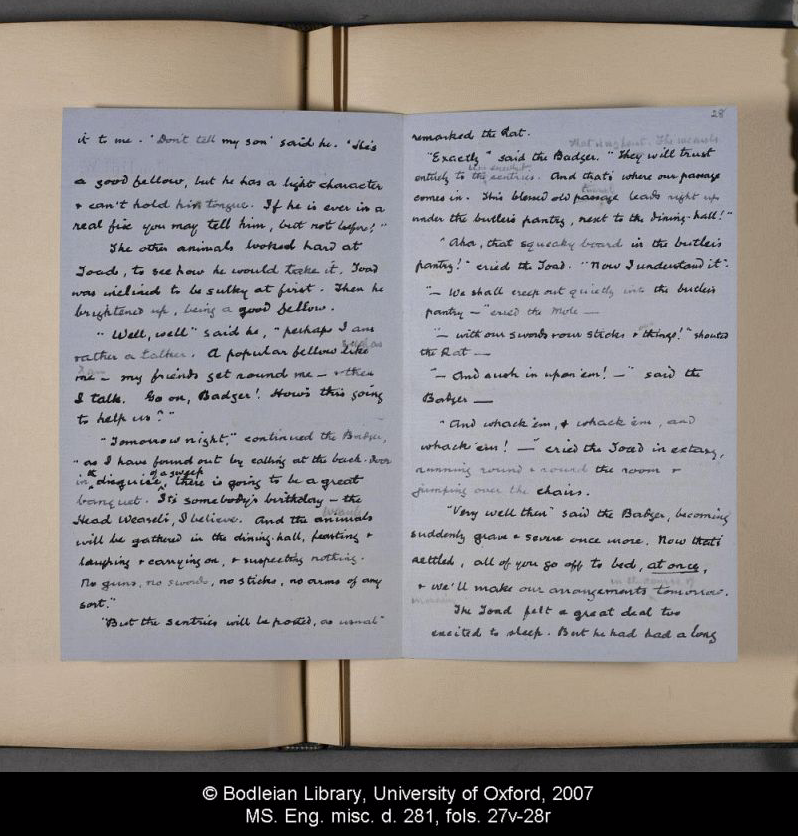 it to me. 'Don't tell my son' said he. 'He's
a good fellow, but he has a light character
& can't hold his tongue. If he is ever in a
real fix you may tell him, but not before!'"
The other animals looked hard at
Toad, to see how he would take it. Toad
was inclined to be sulky at first. Then he
brightened up, being a good fellow.
"Well, well" said he, "perhaps I am
rather a talker. A popular fellow like
such as
I am
me — my friends get round me — & then
I talk. Go on, Badger! How's this going
to help us?"
"Tomorrow night," continued the Badger,
"as I have found out by calling at the back-door
of a sweep
in disguise, there is going to be a great
banquet. It's somebody's birthday — the
Head Weasel's, I believe. And the animals
weasels
will be gathered in the dining-hall, feasting &
laughing & carrying on, & suspecting nothing.
No guns, no swords, no sticks, no arms of any
sort."
"But the sentries will be posted, as usual"
28
remarked the Rat.
The weasels
"Exactly" said the Badger. "They will trust
entirely to the sentries. And that's where our passage
tunnel
comes in. This blessed old passage leads right up
under the butler's pantry, next to the dining-hall!"
"Aha, that squeaky board in the butler's
pantry!" cried the Toad. "Now I understand it".
"— We shall creep out quietly into the butler's
pantry —" cried the Mole —
"— with our swords & our sticks & things!" shouted
the Rat —
"— And rush in upon 'em! —" said the
Badger —
"And whack 'em, & whack 'em, and
whack 'em! —" cried the Toad in extasy,
running round & round the room &
jumping over the chairs.
"Very well then" said the Badger, becoming
suddenly grave & severe once more. Now that's
settled, all of you go off to bed, at once,
in the course of
& we'll make our arrangements tomorrow.
The Toad felt a great deal too
excited to sleep. But he had had a long
© Bodleian Library, University of Oxford, 2007
MS. Eng. misc. d. 281, fols. 27v-28r